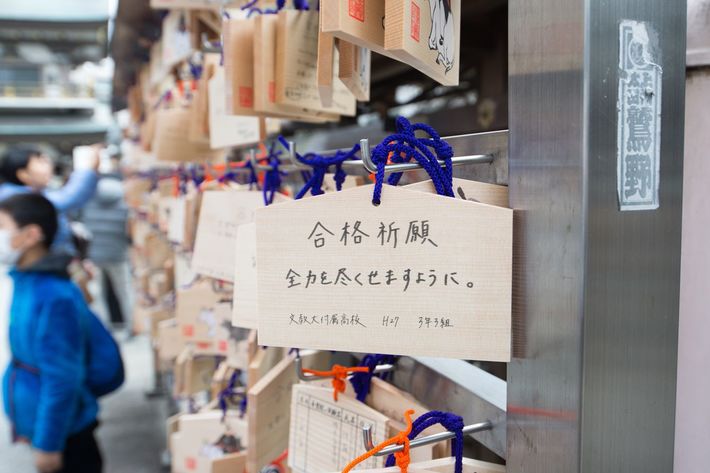 合格祈願
全力を尽くせますように。
文教大付属高校 H27 3年3組
鷲野